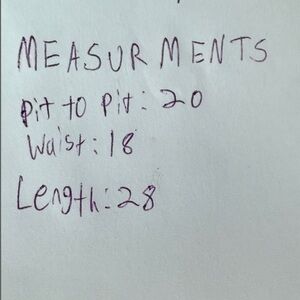 MEASURMENTS
pit to pit: 20
Waist: 18
Length: 28